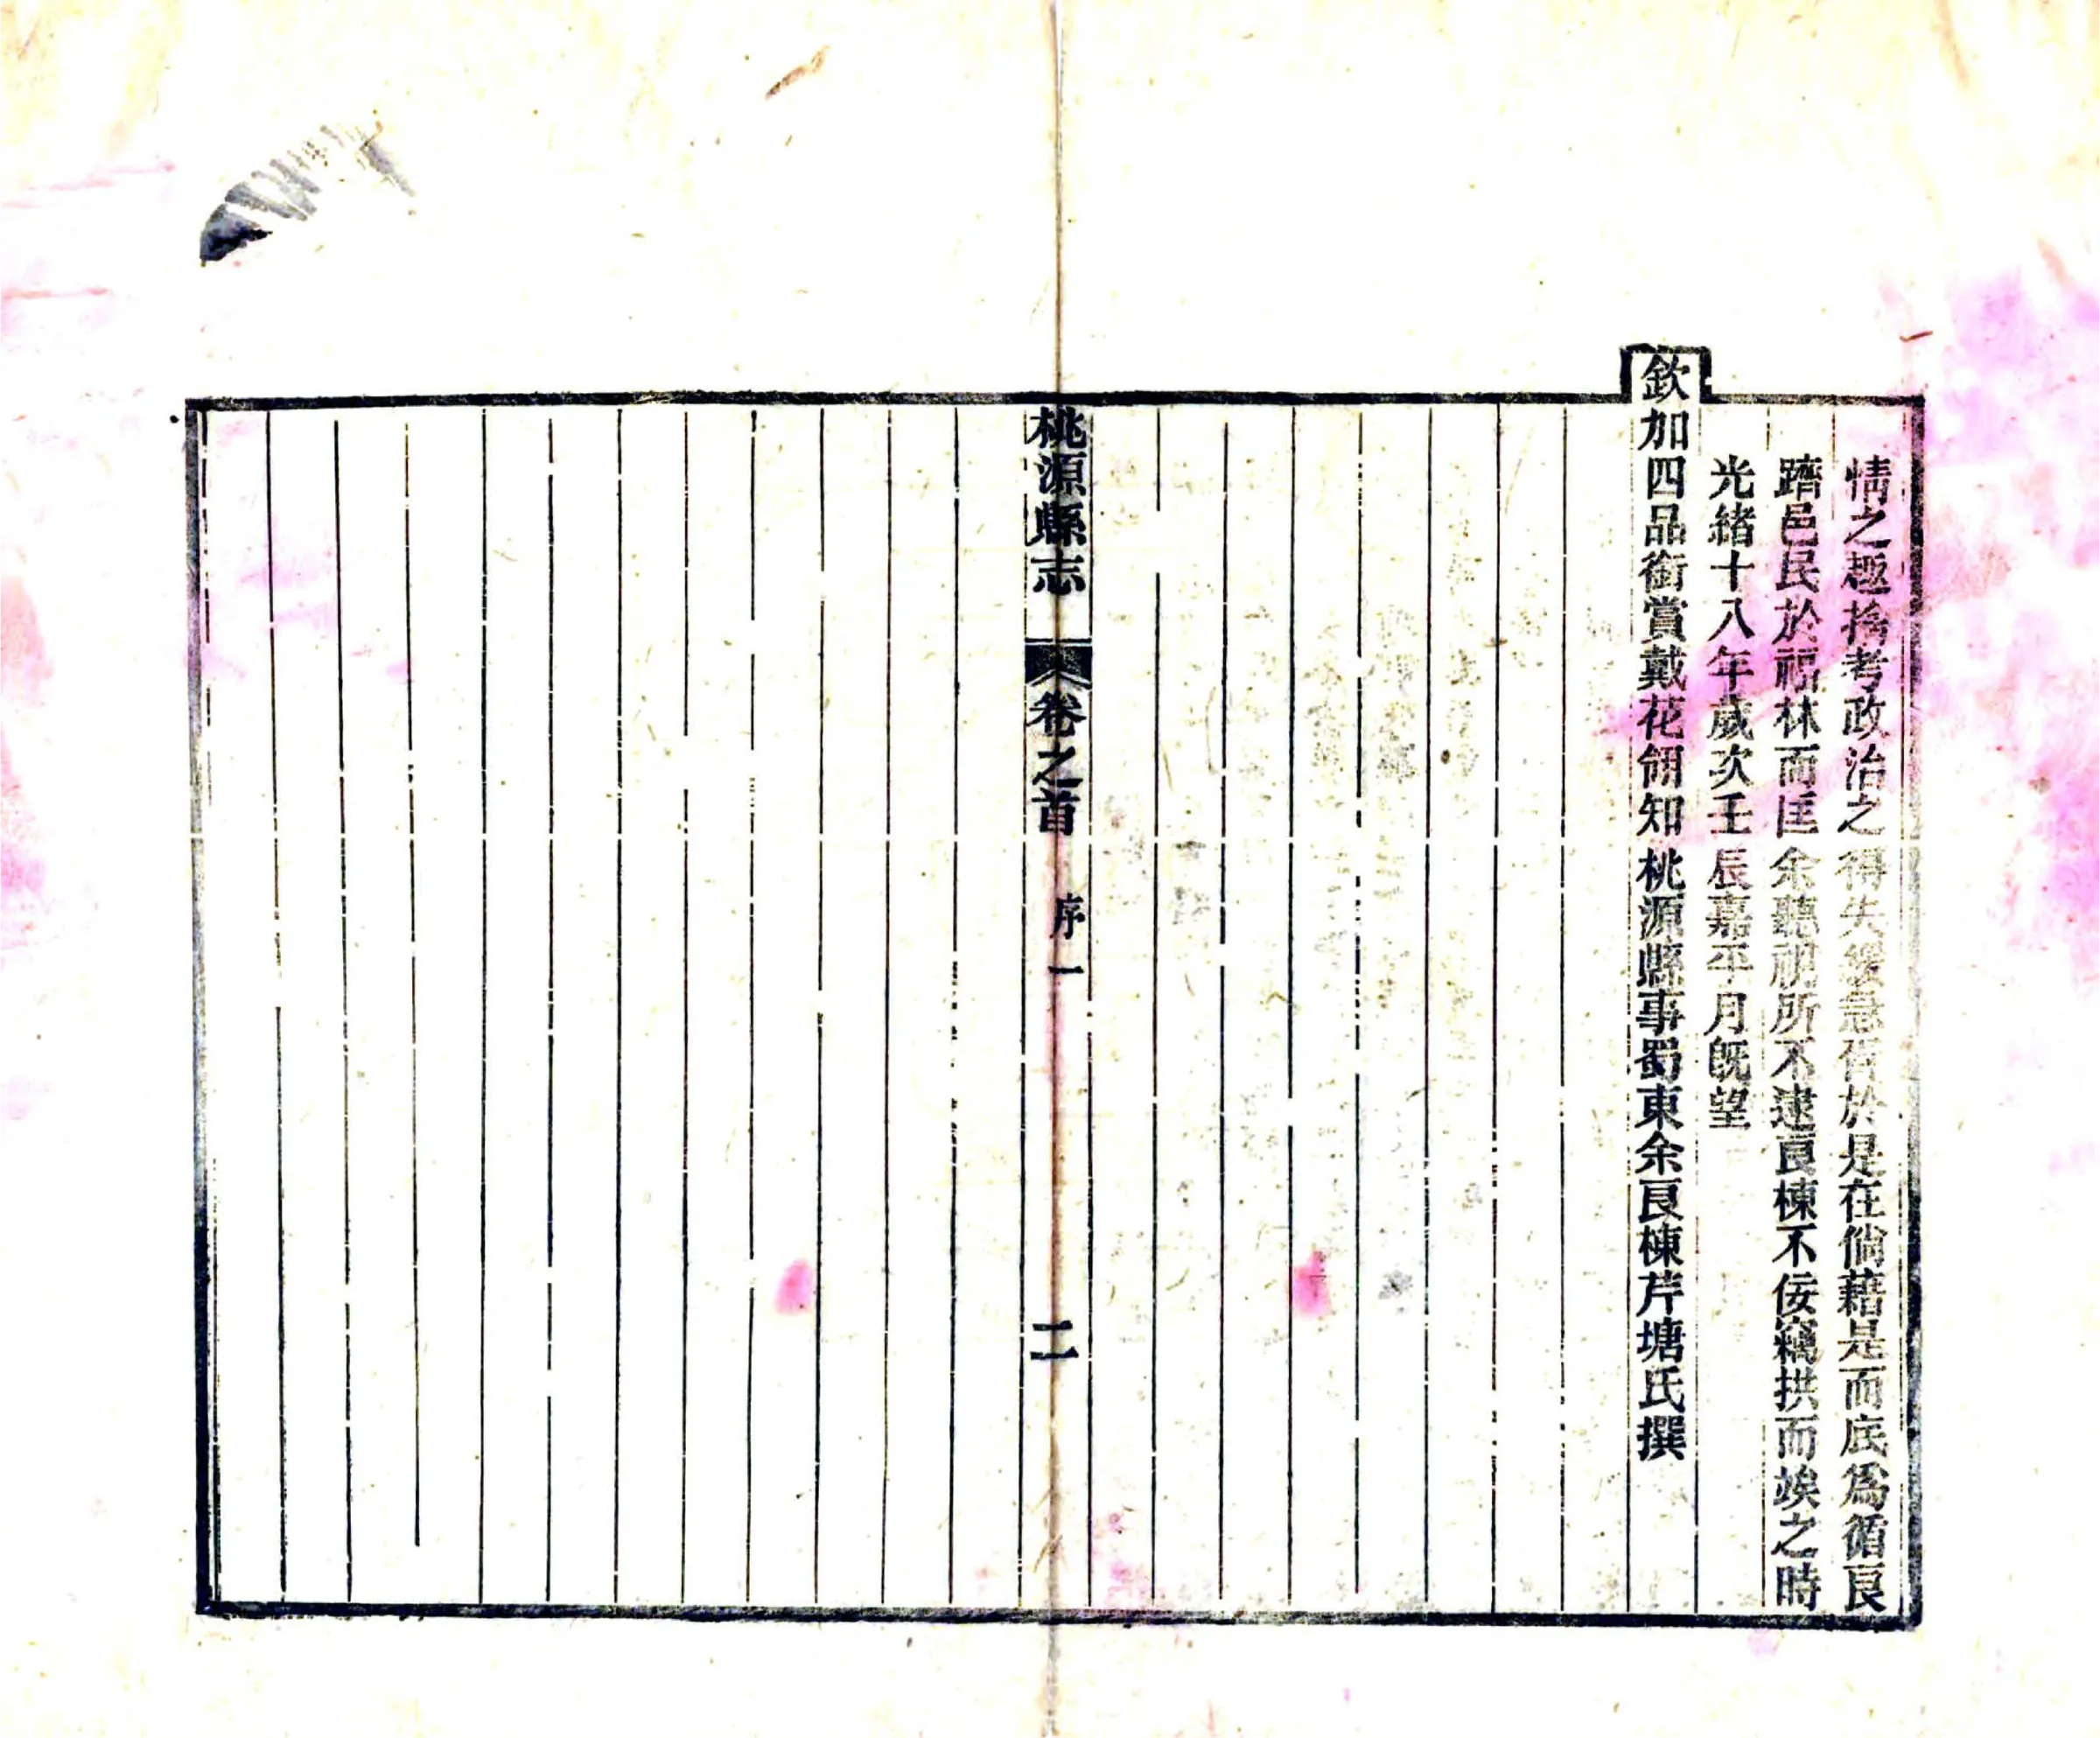 情之趣捨考政治之得失緩急舍於是在倘藉是而底為循良
躋邑民於福林而匡余聽視所不逮良棟不佞竊拱而竢之時
光緒十八年歲次壬辰嘉平月既望
欽加四品銜賞戴花翎知桃源縣事蜀東余良棟芹塘氏撰
桃源縣志 卷之首 序一 二